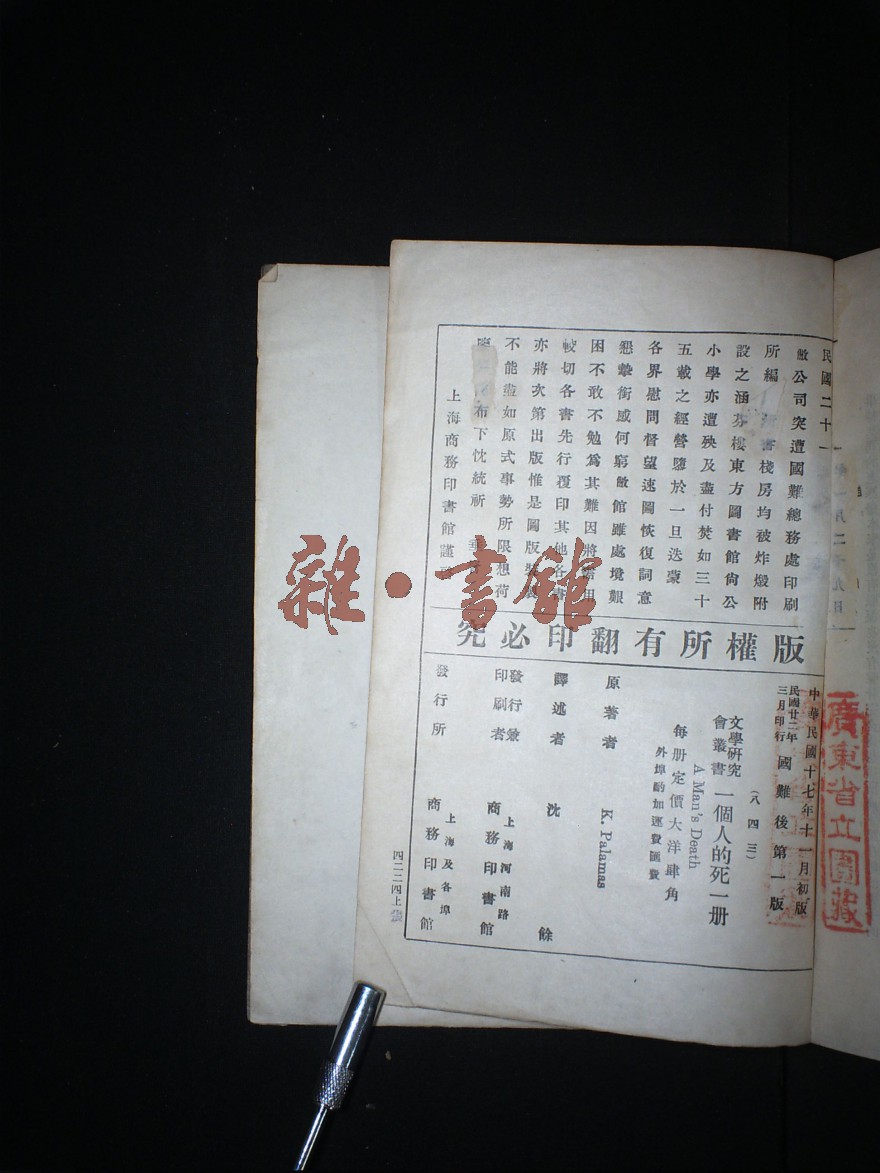 民國二十一年一月二十九日
敝公司突遭國難總務處印刷
所編 書棧房均被炸燬附
設之涵芬樓東方圖書館尙公
小學亦遭殃及盡付焚如三十
五載之經營隳於一旦迭蒙
各界慰問督望速圖恢復詞意
懇摯銜感何窮敝館雖處境艱
困不敢不勉爲其難因將需用
較切各書先行覆印其他各書
亦將次第出版惟是圖版裝製
不能盡如原式事勢所限想荷
布下忱統祈
上海商務印書館謹
版權所有翻印必究
中華民國十七年十一月初版
民國廿二年三月印行 國難後第一版
(八四三)
文學研究會叢書 一個人的死一册
A Man's Death
每册定價大洋肆角
外埠酌加運費匯費
原著者 K. Palamas
譯述者 沈餘
發行兼印刷者 上海河南路 商務印書館
發行所 上海及各埠 商務印書館
四二二四上
廣東省立圖藏
雜·書館